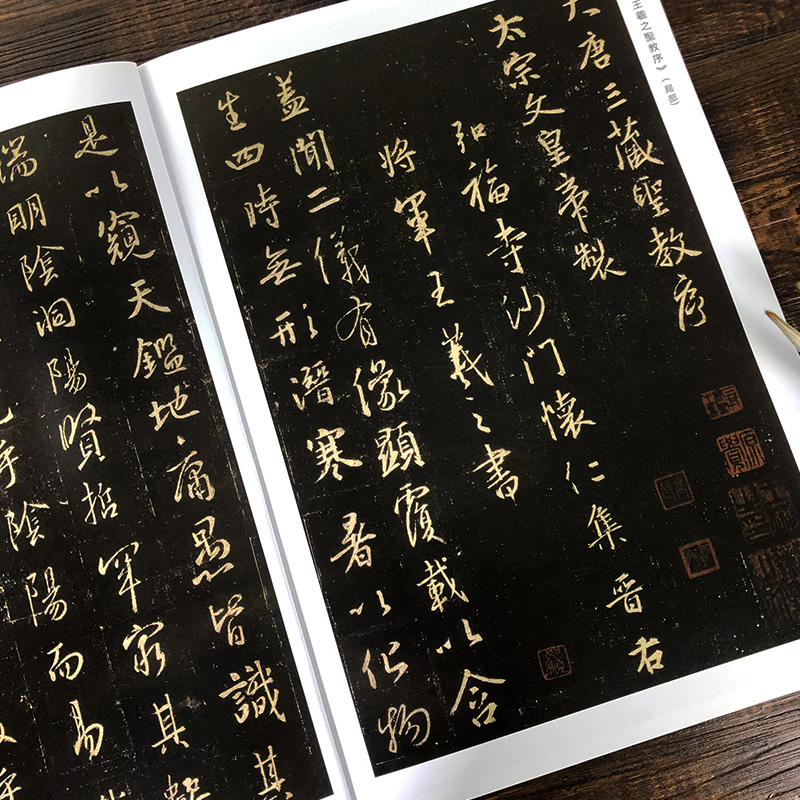 王羲之聖教序》（局部）
大唐三藏聖教序
太宗文皇帝製
弘福寺沙門懷仁集晉右
將軍王羲之書
蓋聞二儀有像顯覆載以含
生四時無形潛寒暑以化物
是以窺天鑑地庸愚皆識其
端明陰洞陽賢哲罕窮其數
乎陰陽而易